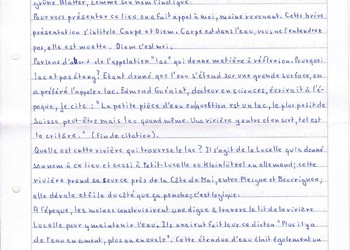 grüne Blätter, comme son nom l'indique.
Pour vous présenter ce lieu on a fait appel à moi, maîre revenant. Cette brève
présentation s'intitule Carpe et Diem. Carpe est dans l'eau, vous ne l'entendrez
pas, elle est muette. Diem c'est moi.
Parlons d'abord de l'appellation "lac" qui donne matière à réflexion. Pourquoi
lac et pas étang? Étant donné que l'eau s'étend sur une grande surface, on
a préféré l'appeler lac. Edmond Guéniat, docteur en sciences, écrivait à l'é-
poque, je cite: "La petite pièce d'eau en question est un lac, le plus petit de
Suisse peut-être mais lac quand même. Une rivière y entre et en sort, tel est
le critère." (fin de citation).
Quelle est cette rivière qui traverse le lac? Il s'agit de la Lucelle qui a donné
son nom à ce lieu et aussi à Petit-Lucelle ou Kleinlützel en allemand; cette
rivière prend sa source près de la Côte de Mai, entre Pleigne et Bourrignon;
elle dévale et file du côté que ça penche; c'est logique.
A l'époque, les moines construisirent une digue à travers le lit de la rivière
Lucelle pour y maintenir l'eau. Ils avaient fait leur ce dicton "Plus il y a
de l'eau en amont, plus on en a vale". Cette étendue d'eau était également un